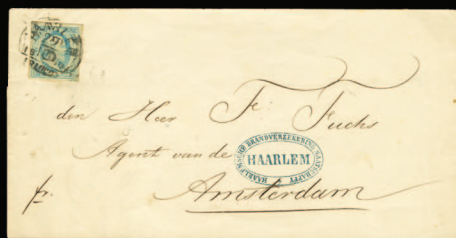 den Heer F. Fuchs
Agent van de
HAARLEMSCHE BRANDVERZEKERING MAATSCHAPPY
HAARLEM
fr. Amsterdam